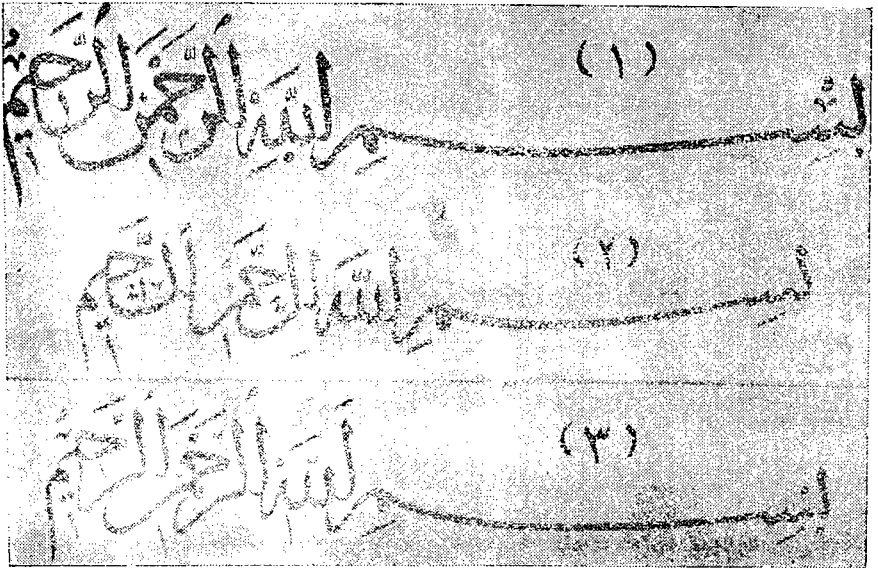 (١)
بِسْمِ اللهِ الرَّحْمٰنِ الرَّحِيْمِ
(٢)
بِسْمِ اللهِ الرَّحْمٰنِ الرَّحِيْمِ
(٣)
بِسْمِ اللهِ الرَّحْمٰنِ الرَّحِيْمِ